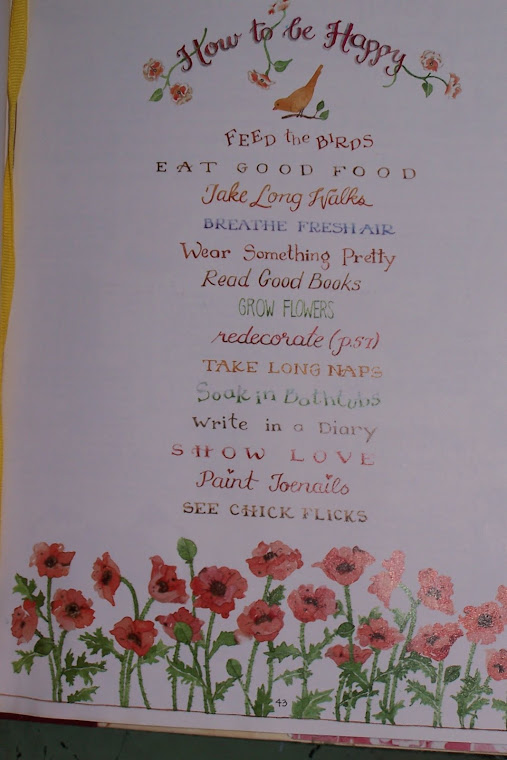 How to be Happy
FEED the BIRDS
EAT GOOD FOOD
Take Long Walks
BREATHE FRESH AIR
Wear Something Pretty
Read Good Books
GROW FLOWERS
redecorate (p.57)
TAKE LONG NAPS
Soak in Bathtubs
Write in a Diary
SHOW LOVE
Paint Toenails
SEE CHICK FLICKS
43